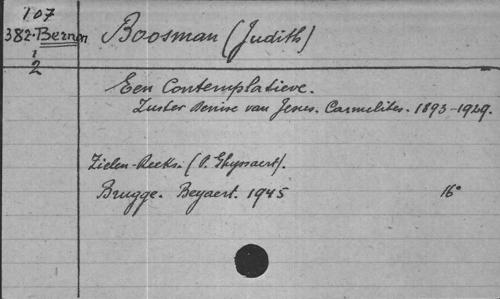 107
382. Bernon
1
2
Boosman (Judith)
Een Contemplatieve.
Zuster Denise van Jesus. Carmelites. 1893-1929.
Zielen-Reeks. (P. Ghyssaert).
Brugge. Beyaert. 1945 16°